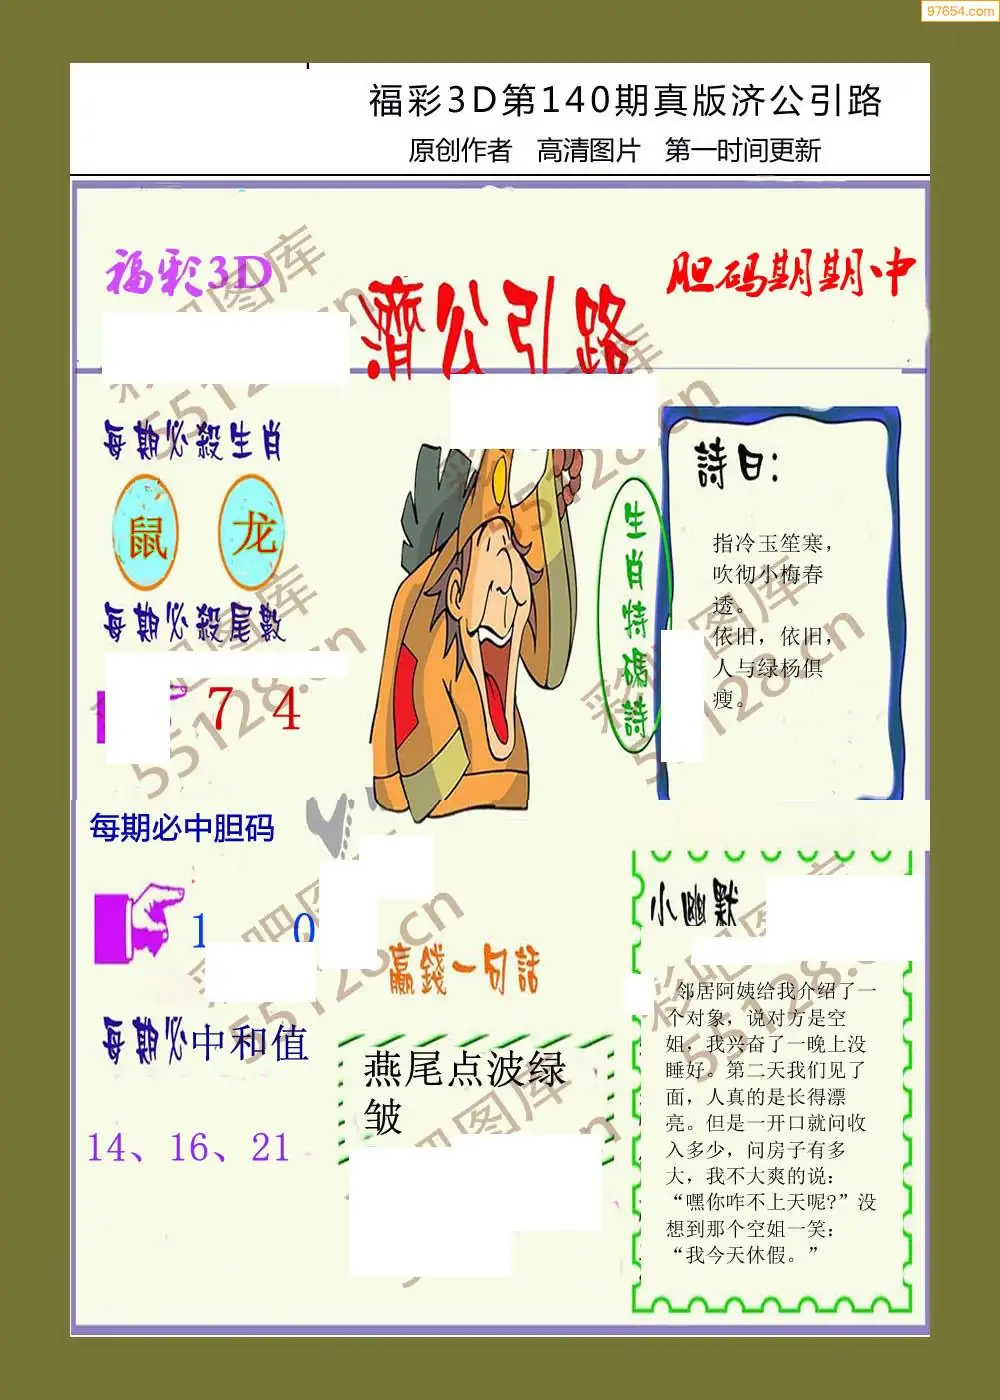 97654.com
福彩3D第140期真版济公引路
原创作者 高清图片 第一时间更新
福彩3D
濟公引路
胆码期期中
每期必殺生肖
鼠 龙
每期必殺尾數
7 4
生肖特碼詩
詩曰：
指冷玉笙寒，
吹彻小梅春
透。
依旧，依旧，
人与绿杨俱
瘦。
每期必中胆码
1 0
每期必中和值
14、16、21
贏錢一句話
燕尾点波绿
皱
小幽默
邻居阿姨给我介绍了一
个对象，说对方是空
姐，我兴奋了一晚上没
睡好。第二天我们见了
面，人真的是长得漂
亮。但是一开口就问收
入多少，问房子有多
大，我不大爽的说：
“嘿你咋不上天呢?”没
想到那个空姐一笑：
“我今天休假。”
彩吧图库
55128.cn